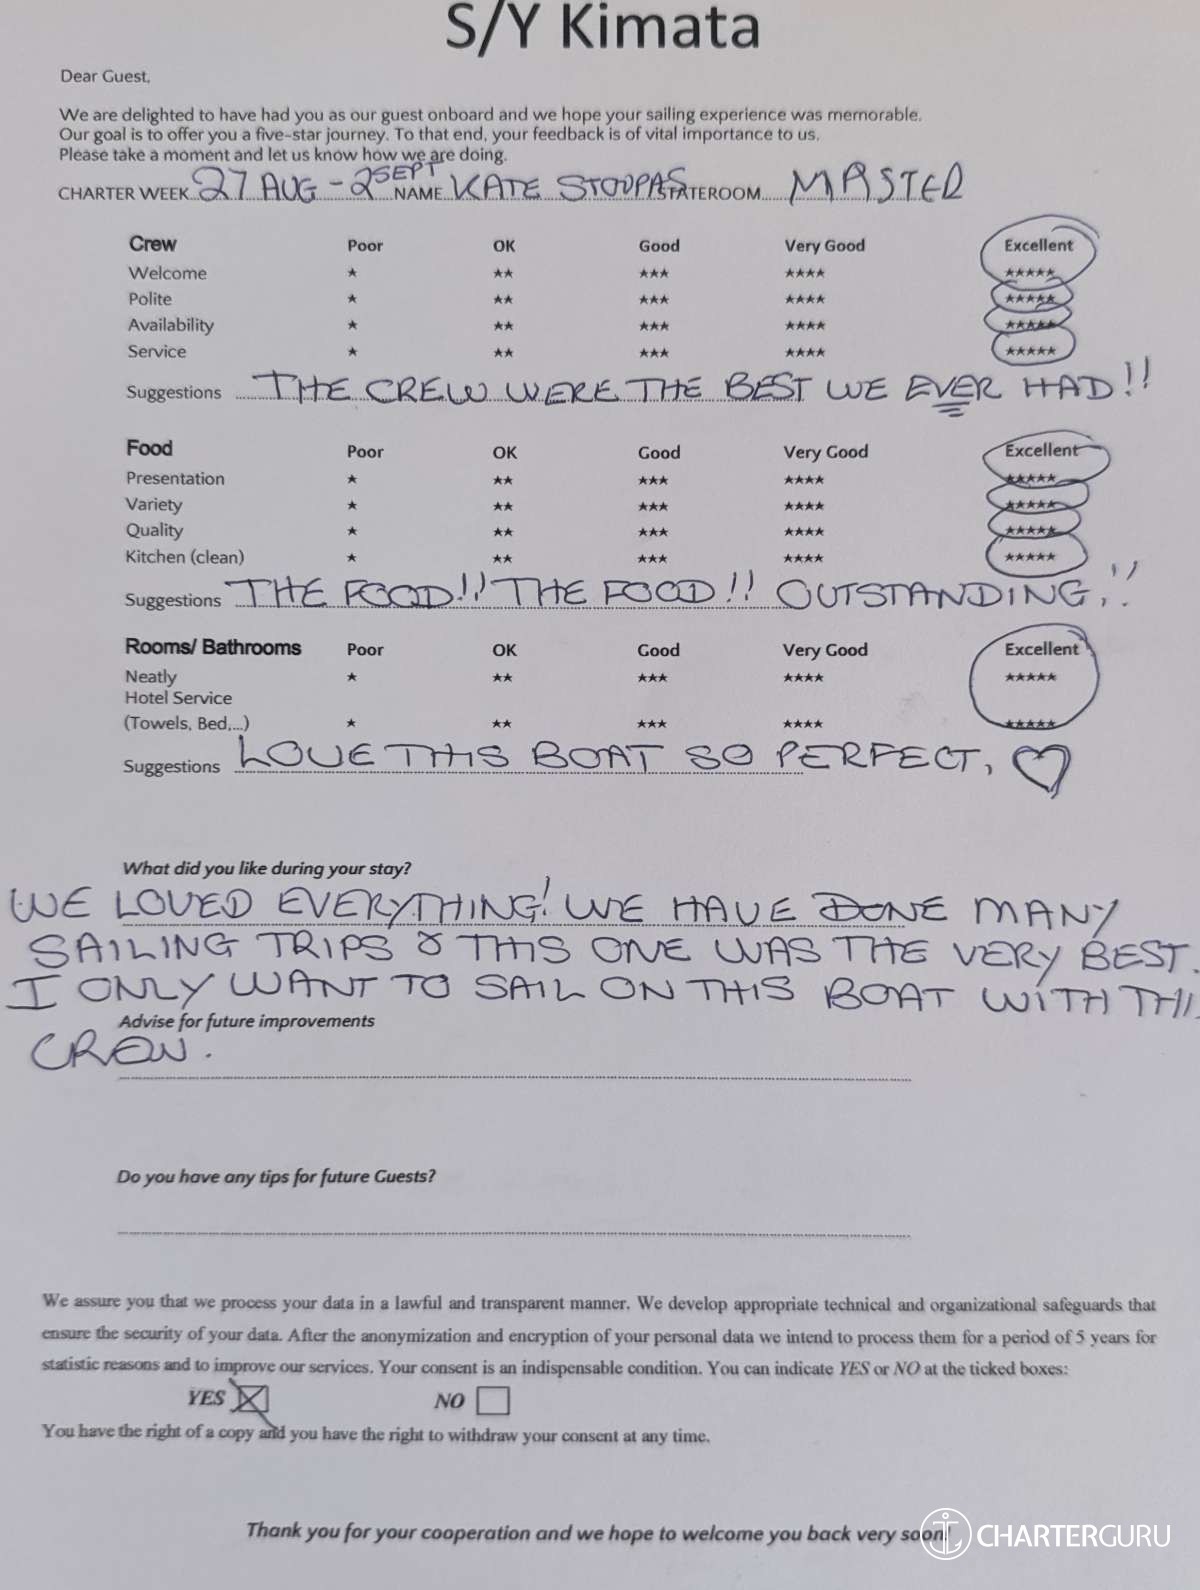 S/Y Kimata
Dear Guest,
We are delighted to have had you as our guest onboard and we hope your sailing experience was memorable.
Our goal is to offer you a five-star journey. To that end, your feedback is of vital importance to us.
Please take a moment and let us know how we are doing.
CHARTER WEEK 27 AUG - 2 SEPT NAME KATE STOUPAS STATEROOM MASTER
Crew Poor OK Good Very Good Excellent
Welcome ★ ★★ ★★★ ★★★★ ★★★★★
Polite ★ ★★ ★★★ ★★★★ ★★★★★
Availability ★ ★★ ★★★ ★★★★ ★★★★★
Service ★ ★★ ★★★ ★★★★ ★★★★★
Suggestions THE CREW WERE THE BEST WE EVER HAD!!
Food Poor OK Good Very Good Excellent
Presentation ★ ★★ ★★★ ★★★★ ★★★★★
Variety ★ ★★ ★★★ ★★★★ ★★★★★
Quality ★ ★★ ★★★ ★★★★ ★★★★★
Kitchen (clean) ★ ★★ ★★★ ★★★★ ★★★★★
Suggestions THE FOOD!! THE FOOD!! OUTSTANDING!!
Rooms/ Bathrooms Poor OK Good Very Good Excellent
Neatly ★ ★★ ★★★ ★★★★ ★★★★★
Hotel Service
(Towels, Bed,...) ★ ★★ ★★★ ★★★★ ★★★★★
Suggestions LOVE THIS BOAT SO PERFECT, ♡
What did you like during your stay?
WE LOVED EVERYTHING! WE HAVE DONE MANY
SAILING TRIPS & THIS ONE WAS THE VERY BEST.
I ONLY WANT TO SAIL ON THIS BOAT WITH THI
Advise for future improvements
CREW.
Do you have any tips for future Guests?
We assure you that we process your data in a lawful and transparent manner. We develop appropriate technical and organizational safeguards that
ensure the security of your data. After the anonymization and encryption of your personal data we intend to process them for a period of 5 years for
statistic reasons and to improve our services. Your consent is an indispensable condition. You can indicate YES or NO at the ticked boxes:
YES ☒ NO ☐
You have the right of a copy and you have the right to withdraw your consent at any time.
Thank you for your cooperation and we hope to welcome you back very soon!
CHARTERGURU